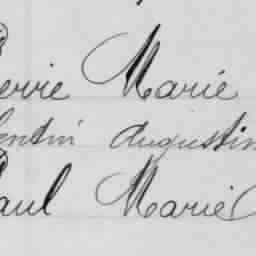 ierre Marie
lentin Augustin
Paul Marie